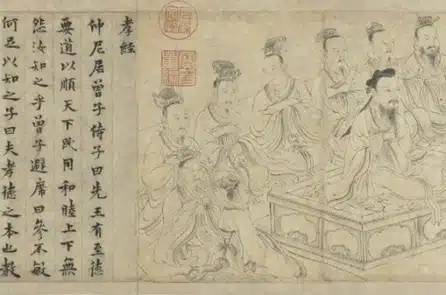 孝經
仲尼居曾子侍子曰先王有至德
要道以順天下民用和睦上下無
怨汝知之乎曾子避席曰參不敏
何足以知之子曰夫孝德之本也教